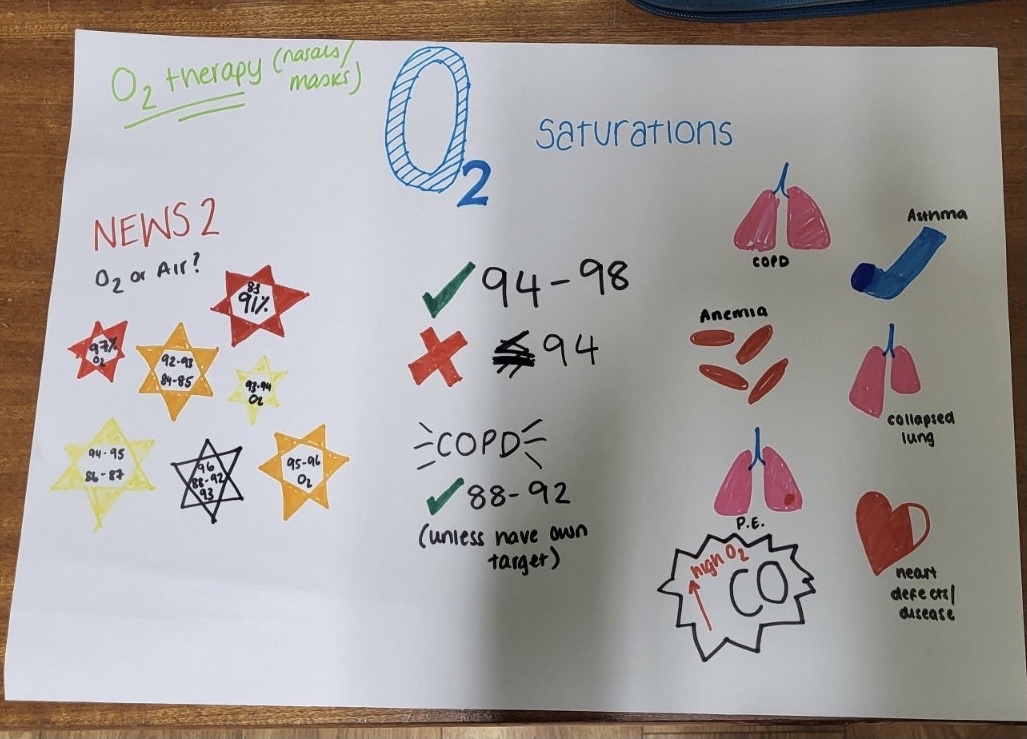 O2 therapy (nasals/
masks)
O2
Saturations
NEWS 2
O2 or Air?
83
91%
97%
O2
92-93
84-85
93-94
O2
94-95
86-87
96
88-92
93
95-96
O2
✓ 94-98
94
COPD
✓ 88-92
(unless have own
target)
COPD
Asthma
Anemia
collapsed
lung
P.E.
high O2
CO
heart
defects/
disease